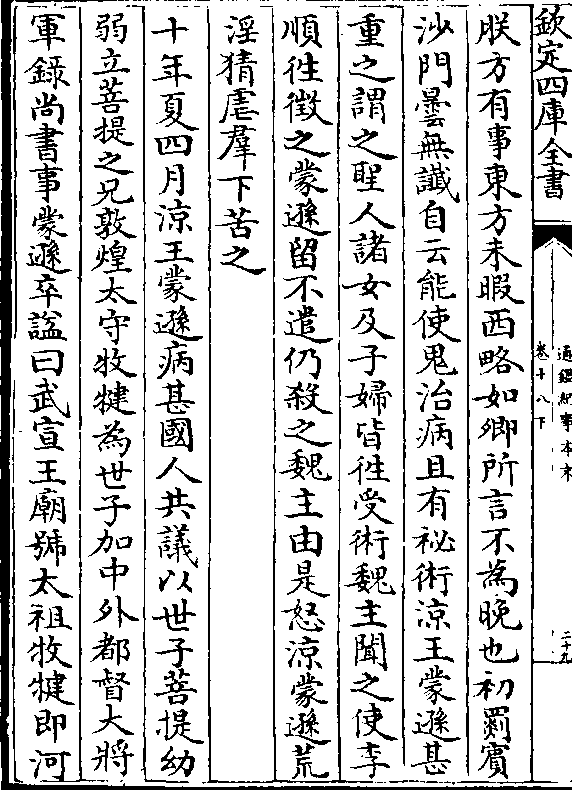 欽定四庫全書
通鑑紀事本末
卷十八下
二十九
朕方有事東方未暇西略如卿所言不為晚也初罽賓
沙門曇無讖自云能使鬼治病且有祕術涼王蒙遜甚
重之謂之聖人諸女及子婦皆往受術魏主聞之使李
順徃徵之蒙遜留不遣仍殺之魏主由是怒涼蒙遜荒
淫猜虐羣下苦之
十年夏四月涼王蒙遜病甚國人共議以世子菩提幼
弱立菩提之兄敦煌太守牧犍為世子加中外都督大將
軍録尚書事蒙遜卒諡曰武宣王廟號太祖牧犍即河